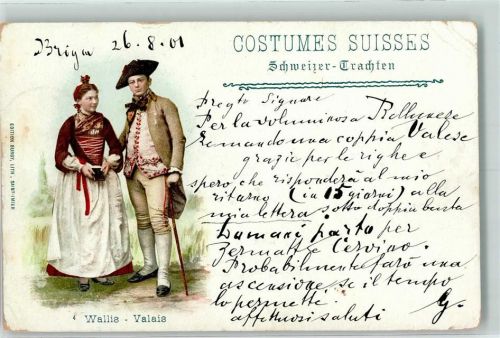 Briga 26.8.01
COSTUMES SUISSES
Schweizer-Trachten
Pregto Signore
Per la voluminosa Bellunese
Le mando una coppia Valese
grazie per le righe
spero, che risponderà al mio
ritorno (in 15 giorni) alla
mia lettera sotto doppia busta
Domani parto per
Zermatt e Cervino.
Probabilmente farò una
ascensione se il tempo
lo permette.
affettuosi saluti G.
Wallis - Valais